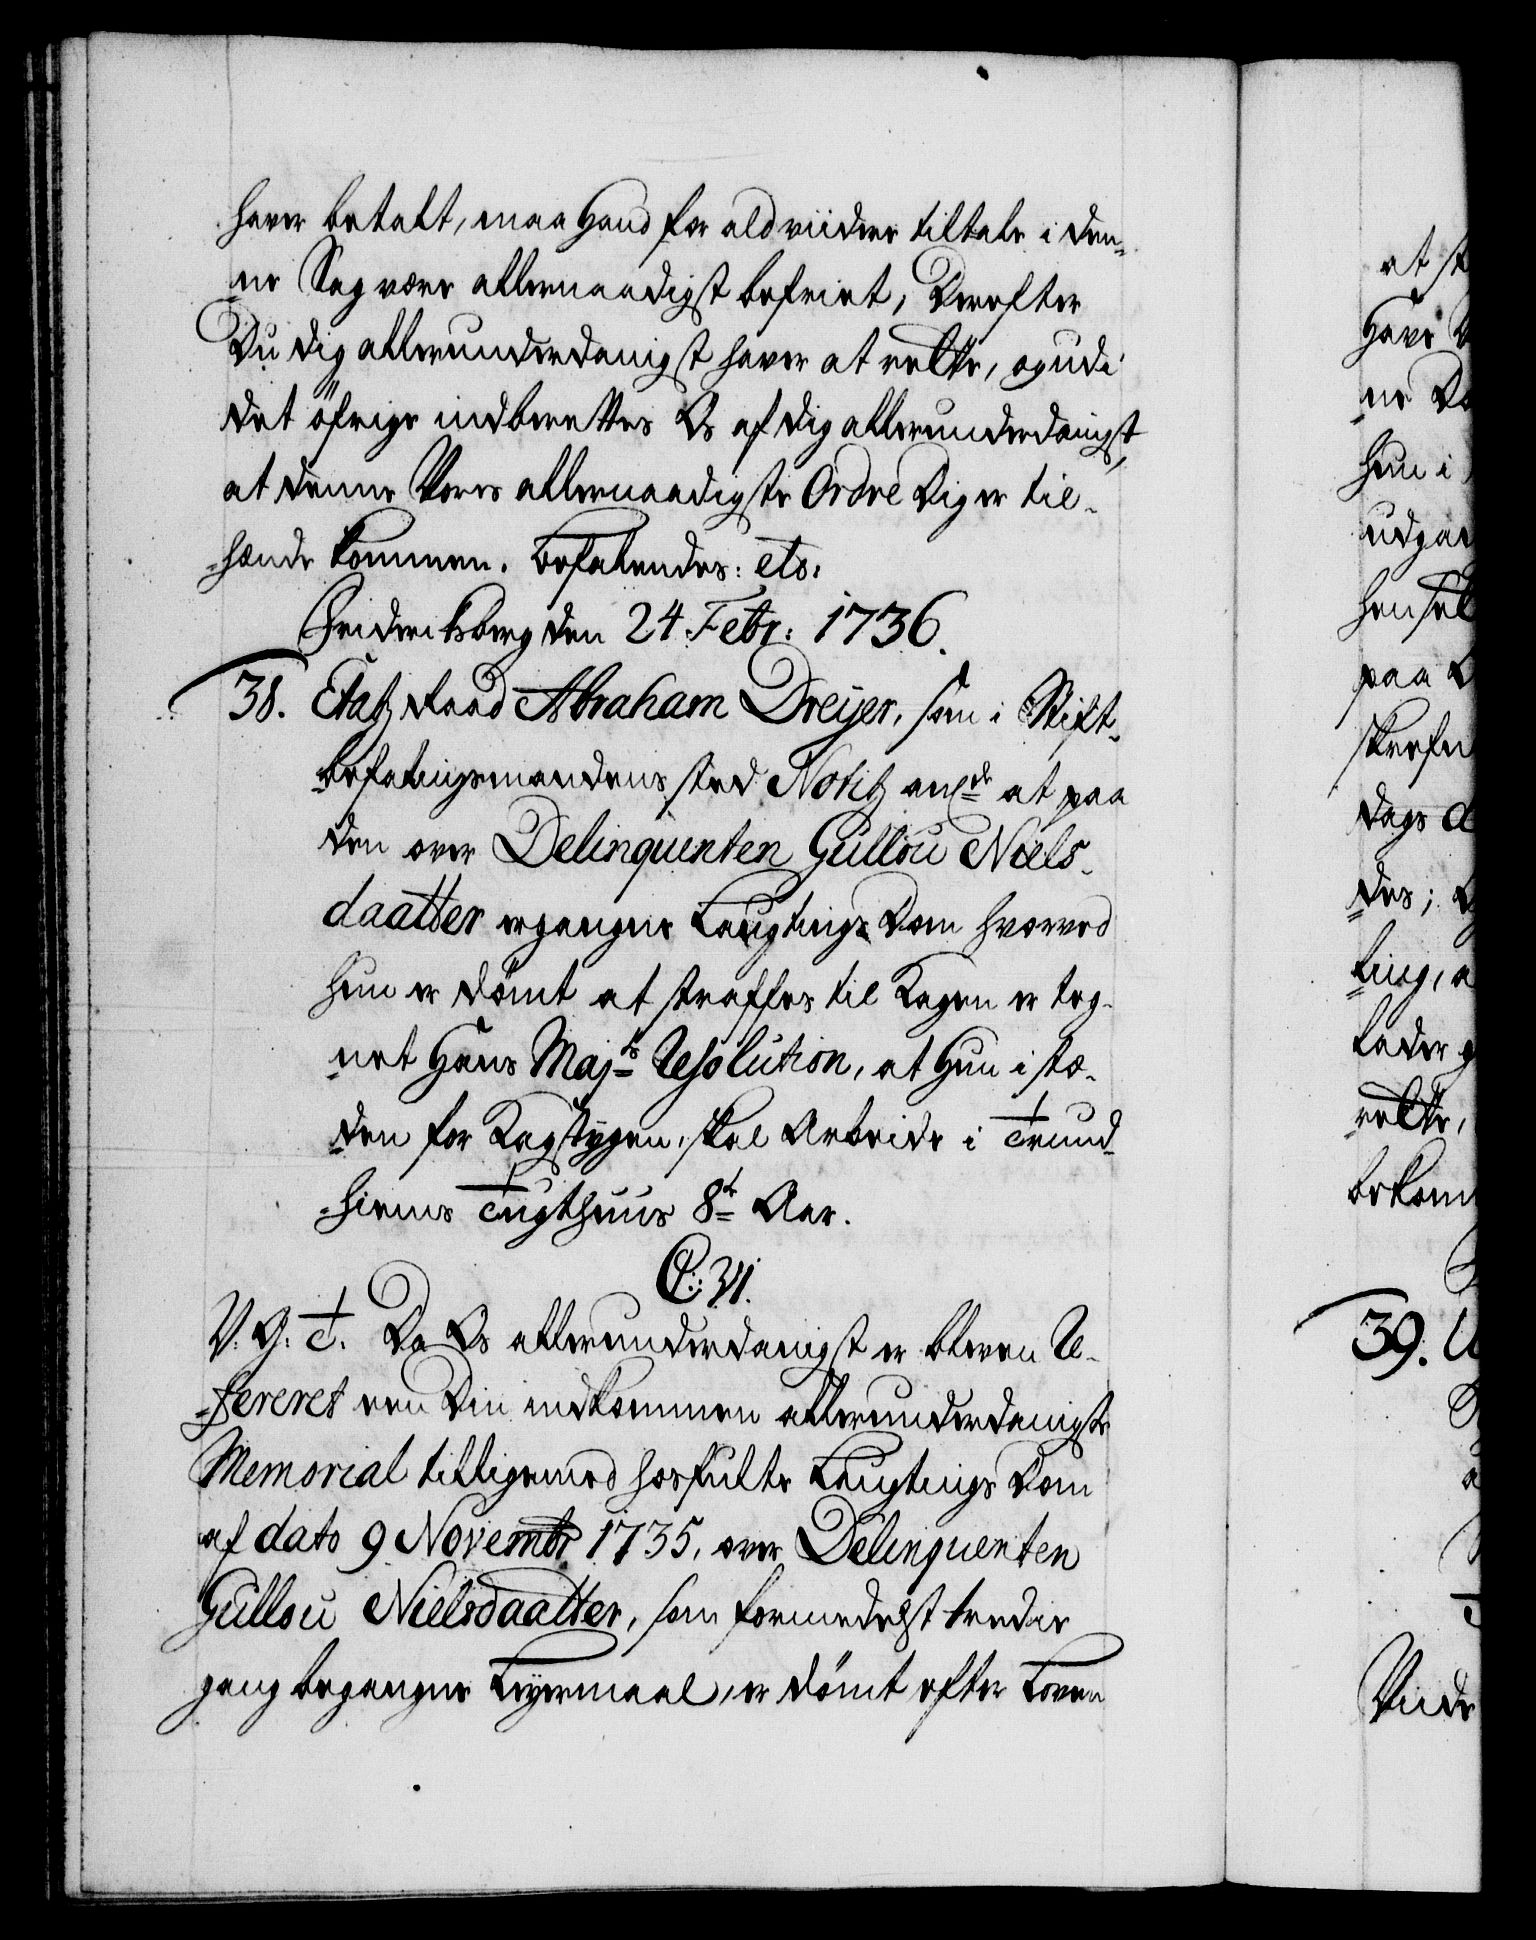 haver betalt, maa Hand for ald viidere tiltale i den-
ne Sag være allernaadigst befriet, Derefter
Du dig allerunderdanigst haver at rette, og udi
det öfrige indberettes Os af dig allerunderdanigst,
at denne Vores allernaadigste Ordre Dig er til-
hænde kommen. Befalendes: etc:
Friderichsberg den 24 Febr: 1736.
38. Etatz Raad Abraham Dreyer, som i Stift-
befalingsmandens sted Notitz anl: at paa
den over Delinqventen Gullou Niels-
daatter ergangne Laugtings Dom hvorved
hun er dömt at straffes til Kagen er teg-
net Hans Majts Resolution, at Hun i stæ-
den for Kagstrygen, skal Arbeide i Trund-
hiems Tugthuus 8t Aar.
C: VI.
V. G. T. Da Os allerunderdanigst er bleven Re-
fereret een Din indkommen allerunderdanigste
Memorial tilligemed hosfulte Laugtings Dom
af dato 9 Novembr 1735, over Delinqventen
Gullou Nielsdaatter, som formedelst tredie
gang begangne Leyermaal, er dömt efter Loven
at
Have
ne
hun i
udgan
paa
dags
des;
ting, a
lader
rette,
bekom
39.